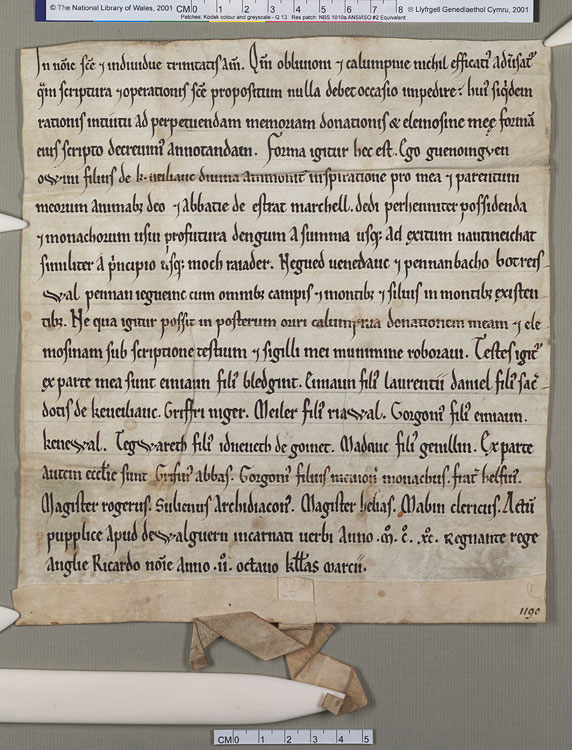 © The National Library of Wales, 2001 CM 0 1 2 3 4 5 6 7 8 © Llyfrgell Genedlaethol Cymru, 2001
Patches: Kodak colour and greyscale - Q 13. Res patch: NBS 1010a ANSI/ISO #2 Equivalent
In no͞ie sc͞e ⁊ indiuidue trinitatis am͞. Qm͞ obliuioni ⁊ calumpnie nichil efficati᷒
qͣm scriptura ⁊ operationis sc͞e propositum nulla debet occasio impedire:
rationis intuitu ad perpetuendam memoriam donationis & elemosine meę formā
eius scripto decreuim᷒ annotandam. Forma igitur hec est. Ego guenoingven
filius de keueiliauc diuina inspiratione pro mea ⁊ parentum
meorum animabꝫ deo ⁊ abbatie de estrat marchell. dedi perhenniter possidenda
⁊ monachorum usui profutura dengum a summa usqꝫ ad exitum nantmeichat
similiter a p͛ncipio usqꝫ moch raiader. Negued uenedauc ⁊ pennanbacho botreis
wal pennan iegueinc cum omnibꝫ campis ⁊ montibꝫ ⁊ siluis in montibꝫ existen
tibꝫ. Ne qua igitur possit in posterum oriri calumpnia donationem meam ⁊ ele
mosinam sub scriptione testium ⁊ sigilli mei munimine roboraui. Testes igit͛
ex parte mea sunt einiaun fili᷒ bledgint. Einiaun fili᷒ laurentii daniel fili᷒ sac͛
dotis de keueiliauc. Griffri niger. Meiler fili᷒ riawal. Gorgoni᷒ fili᷒ einiaun.
kenewal. Tegwareth fili᷒ idneueth de goinet. Madauc fili᷒ genillin. Ex parte
autem eccl͞ie sunt Grifin᷒ abbas. Gorgoni᷒ filius monachus. frat͛
Magister rogerus. Sulienus Archidiacon᷒. Magister helias. Mabin clericus. Actū
pupplice Apud dewalguern incarnati uerbi Anno .M͞. C͞. XC͞. Regnante rege
Anglie Ricardo no͞ie Anno .II. octauo kl͞as marcii.
1190
CM 0 1 2 3 4 5